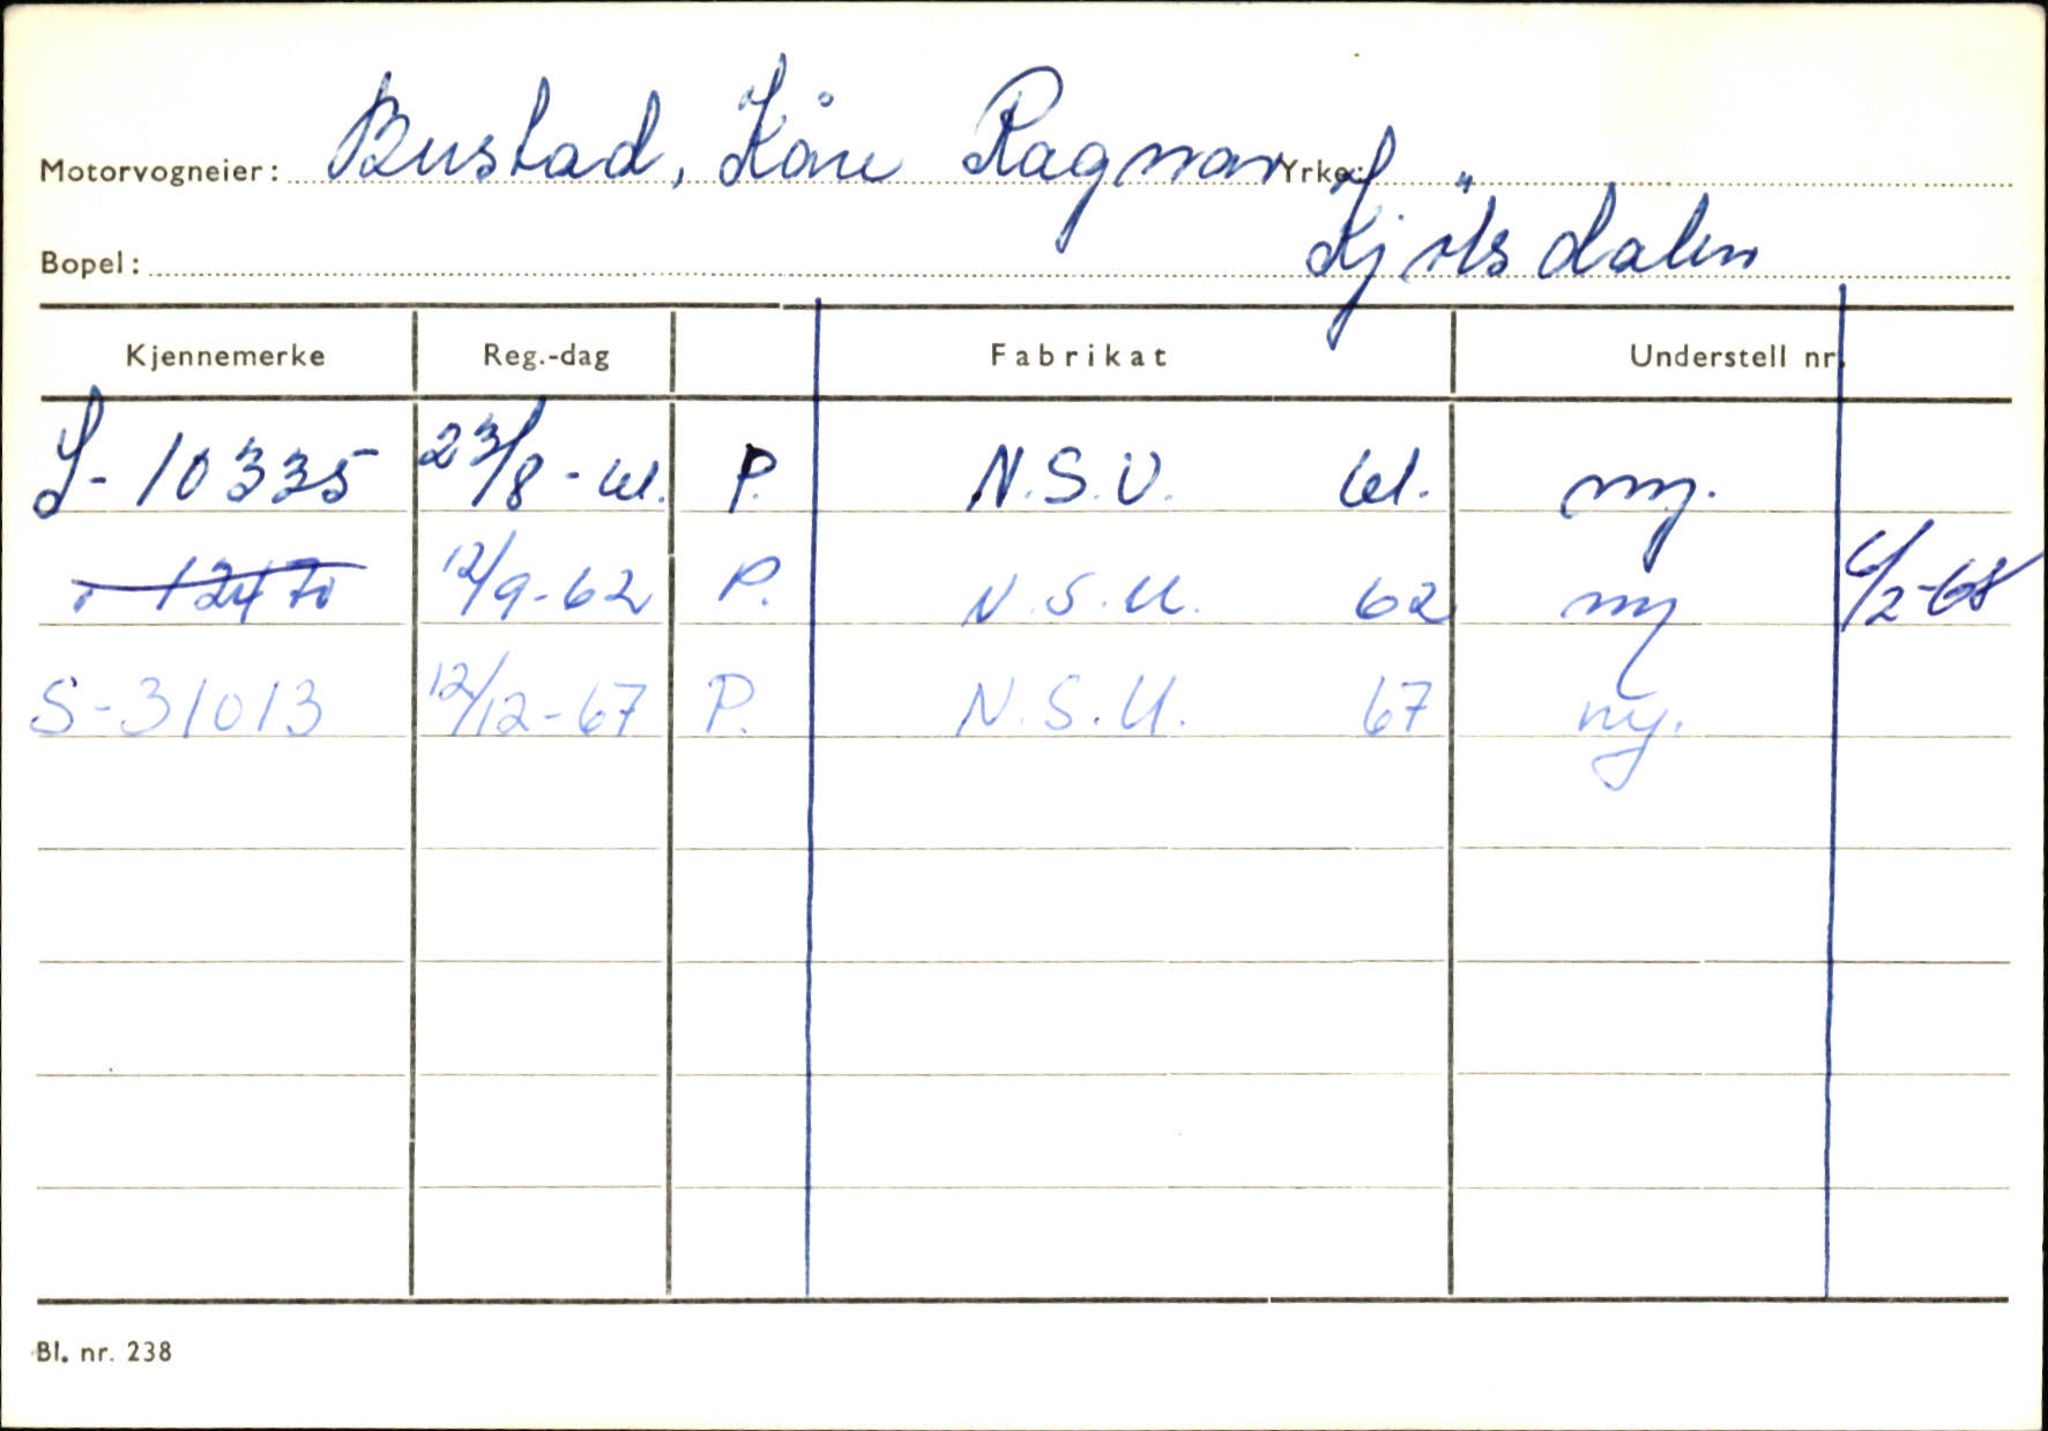 Motorvogneier: Bustad, Kåre Ragnar Yrke:
Bopel: Kjölsdalen
Kjennemerke Reg.-dag Fabrikat Understell nr.
S-10335 23/8-61. P. N.S.U. 61. ny.
" 12470 12/9-62 P. N.S.U. 62 ny 6/2-68
S-31013 12/12-67 P. N.S.U. 67 ny.
Bl. nr. 238